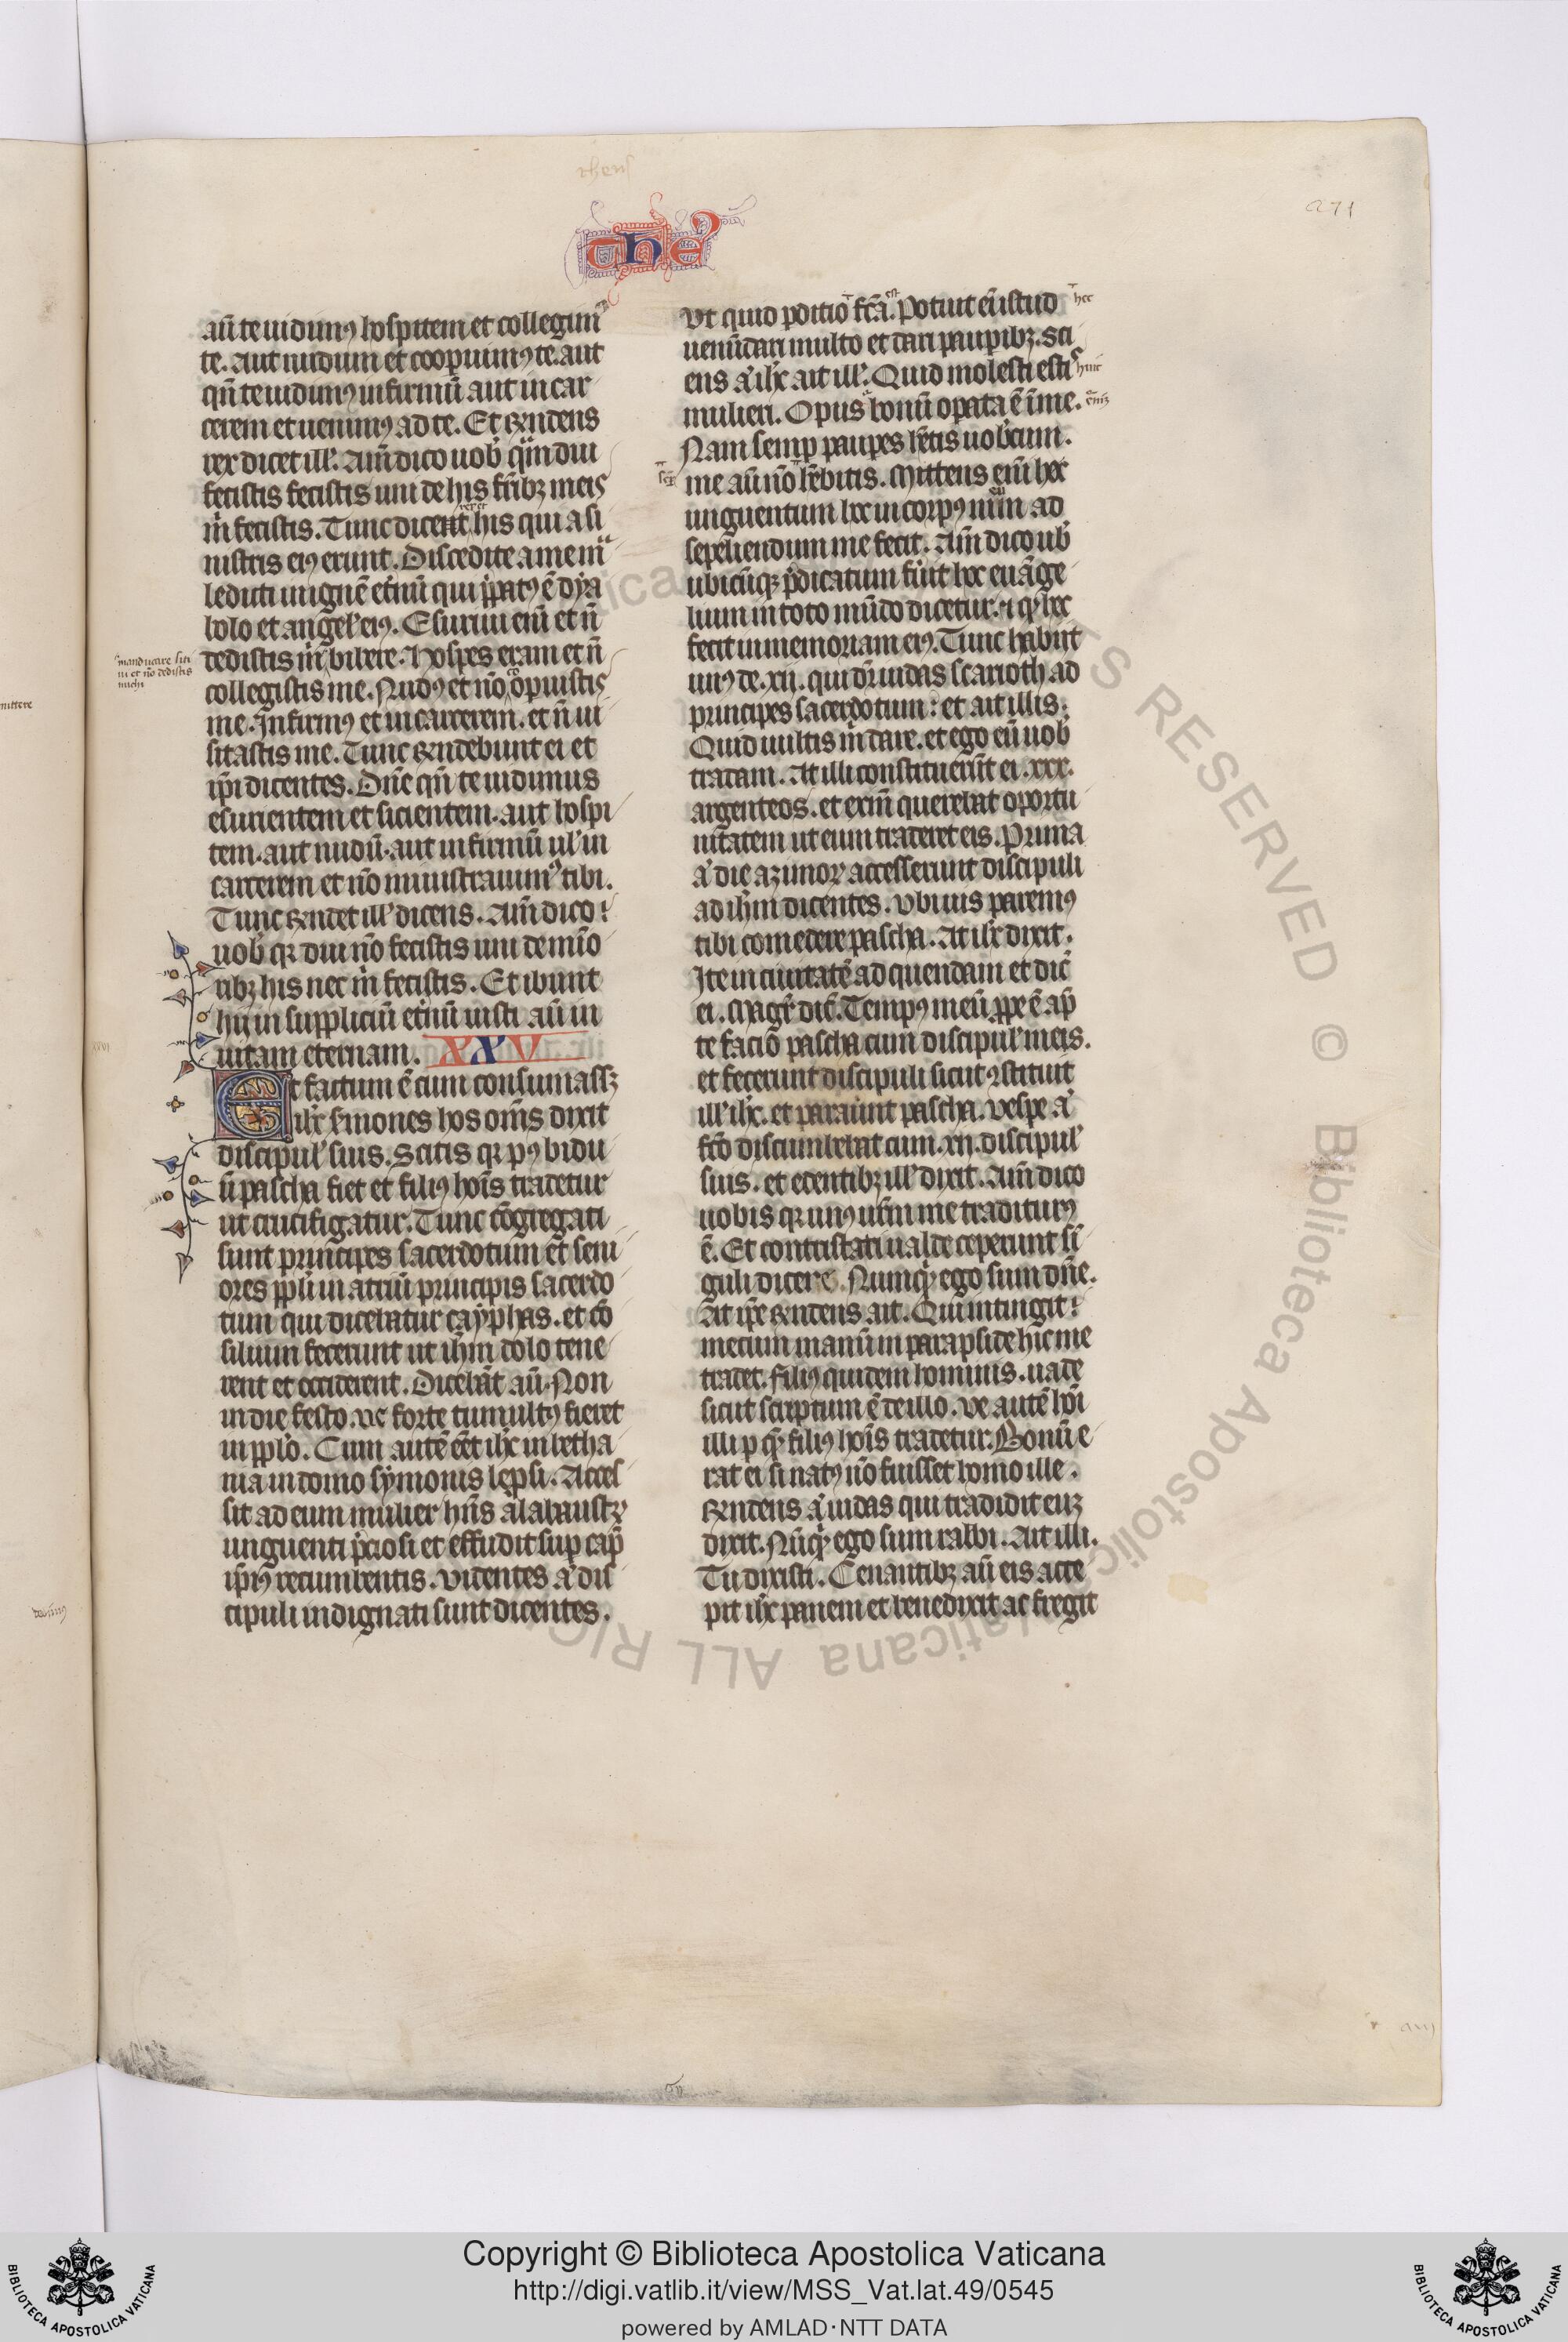 theuſ
the9
271
aū te uidim9 hoſpitem et collegim9
te. Aut nudum et cooperuim9 te. aut
qn̄ te uidim9 infirmū aut in car
cerem et uenim9 ad te. Et r̄ndens
rex dicet ill'. Am̄ dico uob' q̄mdiu
feciſtis feciſtis uni de his fr̄ibꝫ meis
m̄ feciſtis. Tunc dicet rex et his qui a ſi
niſtris ei9 erunt. Diſcedite a me ma
ledicti in ignē et̄nū qui p̄pat9 ē dya
bolo et angel' ei9. Eſuriui enī et n̄
dediſtis m̄ bibere. Hoſpes eram et n̄
manducare ſiti
ui et nō dediſtis
michi
collegiſtis me. Nud9 et nō coopuiſtis
me. Infirm9 et in carcerem. et n̄ ui
ſitaſtis me. Tunc r̄ndebunt ei et
ip̄i dicentes. Dn̄e qn̄ te uidimus
eſurientem et ſicientem. aut hoſpi
tem. aut nudū. aut infirmū ul' in
carcerem et nō miniſtrauim9 tibi.
Tunc r̄ndet ill' dicens. Am̄ dico
uob' qꝛ diu nō feciſtis uni de mīo
ribꝫ his nec m̄ feciſtis. Et ibunt
hii in ſuppliciū et̄nū iuſti aū in
uitam eternam. XXVI
Et factum ē cum conſumaſſꝫ
ih̄c ſ̄mones hos om̄s dixit
diſcipul' ſuis. Scitis qꝛ p9 bidu
ū paſcha fiet et fili9 hoīs tradetur
ut crucifigatur. Tunc cōgregati
ſunt principes ſacerdotum et ſeni
ores pp̄li in atriū principis ſacerdo
tum qui dicebatur cayphas. et cō
ſilium fecerunt ut ih̄m dolo tene
rent et occiderent. Dicebāt aū. Non
in die feſto. ne forte tumult9 fieret
in pp̄lo. Cum autē eēt ih̄c in betha
nia in domo ſymonis lep̄ſi. Acceſ
ſit ad eum mulier hn̄s alabauſtꝝ
unguenti p̄cioſi et effudit ſup cap̄
ip̄i9 recumbentis. Videntes a' diſ
cipuli indignati ſunt dicentes.
Vt quid pditio hec fcā est. Potuit enī iſtud
uenūdari multo et dari paupibꝫ. Sci
ens a' ih̄c ait ill'. Quid moleſti eſtis huic
mulieri. Opus enī bonū opata ē ī me.
Nam ſemp paupes hētis uobcum.
me aū nō ſemp hēbitis. Mittens enī hec
unguentum hoc in corp9 meum ad
ſepeliendum me fecit. Am̄ dico uob'
ubicūqꝫ p̄dicatum fūit hoc euāge
lium in toto mūdo dicetur. et qd' hec
fecit in memoriam ei9. Tunc habiit
un9 de .xii. qui dr̄ iudas ſcarioth ad
principes ſacerdotum: et ait illis.
Quid uultis m̄ dare. et ego eū uob'
tradam. At illi conſtituerūt ei .xxx.
argenteos. et exīn querebat oportu
nitatem ut eum traderet eis. Prima
a' die azimoꝝ acceſſerunt diſcipuli
ad ih̄m dicentes. Vbi uis paremus
tibi comedere paſcha. At ih̄c dixit.
Ite in ciuitatē ad quendam et dic̄
ei. Magr̄ dic̄. Temp9 meū ppe ē. ap̄
te faciō paſcha cum diſcipul' meis.
et fecerunt diſcipuli ſicut 9ſtituit
ill' ih̄c. et paraūnt paſcha. Veſpe a'
fcō diſcumbebat cum .xii. diſcipul'
ſuis. et edentibꝫ ill' dixit. Am̄ dico
uobis qꝛ un9 ur̄m me traditur9
ē. Et contriſtati ualde ceperunt ſī
guli dicere. Numqd' ego ſum dn̄e.
At ip̄e r̄ndens ait. Qui intingit
mecum manū in parapſide hic me
tradet. Fili9 quidem hominis. uadē
ſicut ſcriptum ē de illo. Ve autē hōi
illi p qd' fili9 hoīs tradetur. Bonū e
rat ei ſi nat9 nō fuiſſet homo ille.
R̄ndens a' iudas qui tradidit euꝫ
dixit. Nūqd' ego ſum rabbi. Ait illi.
Tu dixiſti. Cenantibꝫ aū eis acce
pit ih̄c panem et benedixit ac fregit
Copyright © Biblioteca Apostolica Vaticana
http://digi.vatlib.it/view/MSS_Vat.lat.49/0545
powered by AMLAD·NTT DATA